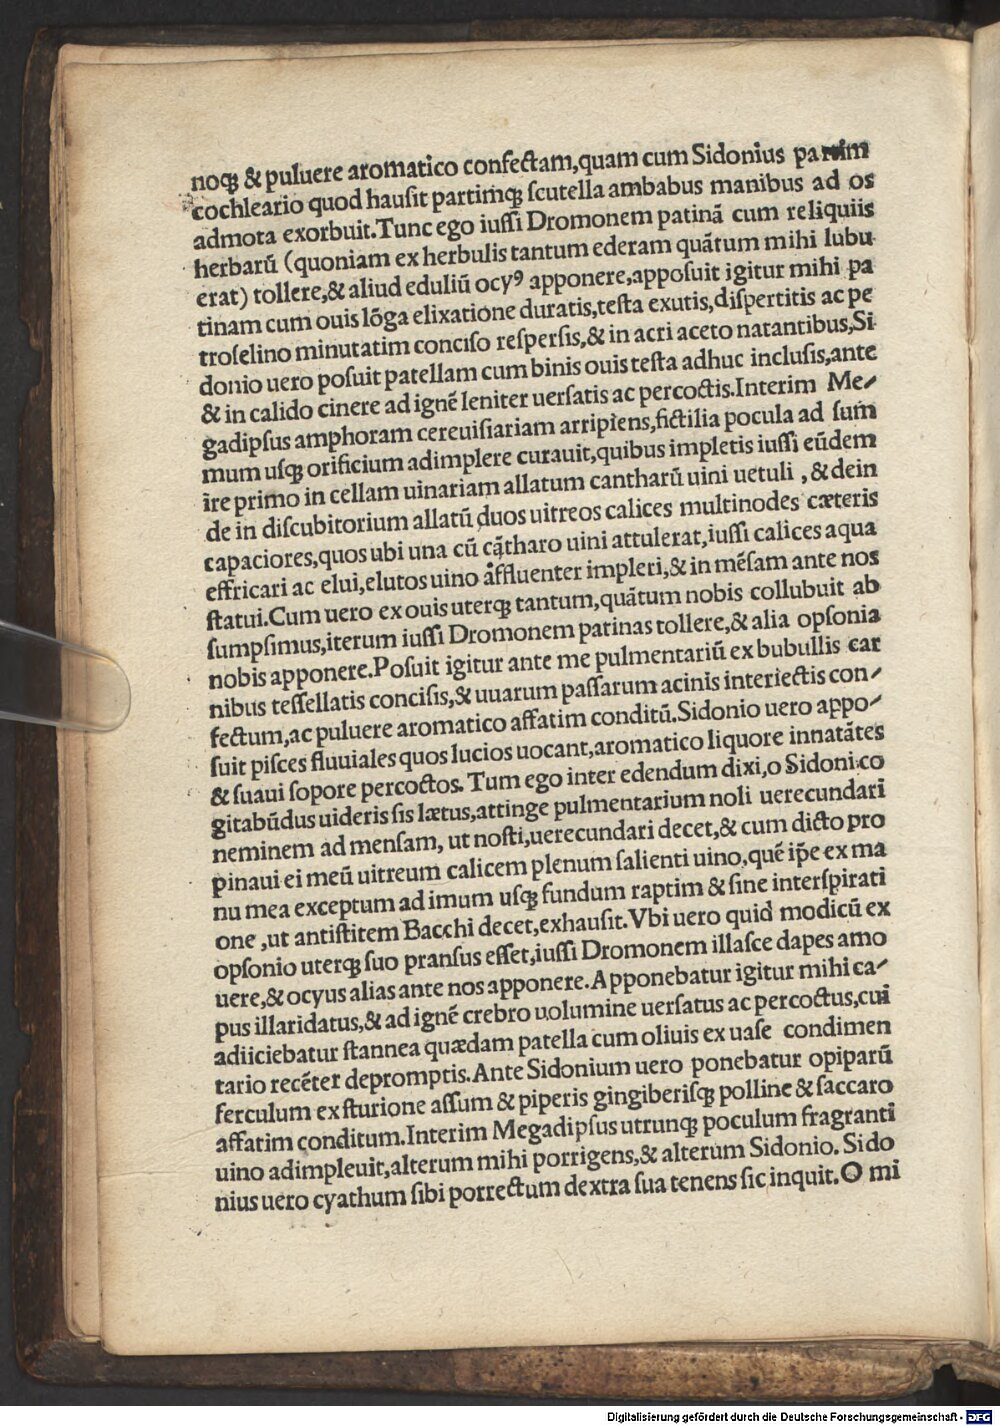 noqꝫ & puluere aromatico confectam,quam cum Sidonius partim
cochleario quod hausit partimqꝫ scutella ambabus manibus ad os
admota exorbuit.Tunc ego iussi Dromonem patinã cum reliquiis
herbarũ (quoniam ex herbulis tantum ederam quãtum mihi lubu
erat) tollere,& aliud eduliũ ocyꝰ apponere,apposuit igitur mihi pa
tinam cum ouis lõga elixatione duratis,testa exutis,dispertitis ac pe
troselino minutatim conciso respersis,& in acri aceto natantibus,Si
donio uero posuit patellam cum binis ouis testa adhuc inclusis,ante
& in calido cinere ad ignẽ leniter uersatis ac percoctis.Interim Me/
gadipsus amphoram cereuisiariam arripiens,fictilia pocula ad sum
mum usqꝫ orificium adimplere curauit,quibus impletis iussi eũdem
ire primo in cellam uinariam allatum cantharũ uini uetuli , & dein
de in discubitorium allatũ duos uitreos calices multinodes cæteris
capaciores,quos ubi una cũ cãtharo uini attulerat,iussi calices aqua
effricari ac elui,elutos uino affluenter impleri,& in mẽsam ante nos
statui.Cum uero ex ouis uterqꝫ tantum,quãtum nobis collubuit ab
sumpsimus,iterum iussi Dromonem patinas tollere,& alia opsonia
nobis apponere.Posuit igitur ante me pulmentariũ ex bubullis car
nibus tessellatis concisis,& uuarum passarum acinis interiectis con/
fectum,ac puluere aromatico affatim conditũ.Sidonio uero appo/
suit pisces fluuiales quos lucios uocant,aromatico liquore innatãtes
& suaui sopore percoctos. Tum ego inter edendum dixi,o Sidoni.co
gitabũdus uideris sis lætus,attinge pulmentarium noli uerecundari
neminem ad mensam, ut nosti,uerecundari decet,& cum dicto pro
pinaui ei meũ uitreum calicem plenum salienti uino,quẽ ip̃e ex ma
nu mea exceptum ad imum usqꝫ fundum raptim & sine interspirati
one ,ut antistitem Bacchi decet,exhausit.Vbi uero quid modicũ ex
opsonio uterqꝫ suo pransus esset,iussi Dromonem illasce dapes amo
uere,& ocyus alias ante nos apponere.Apponebatur igitur mihi ca/
pus illaridatus,& ad ignẽ crebro uolumine uersatus ac percoctus,cui
adiiciebatur stannea quædam patella cum oliuis ex uase condimen
tario recẽter depromptis.Ante Sidonium uero ponebatur opiparũ
ferculum ex sturione assum & piperis gingiberisqꝫ polline & saccaro
affatim conditum.Interim Megadipsus utrunqꝫ poculum fragranti
uino adimpleuit,alterum mihi porrigens,& alterum Sidonio. Sido
nius uero cyathum sibi porrectum dextra sua tenens sic inquit.O mi
Digitalisierung gefördert durch die Deutsche Forschungsgemeinschaft - DFG